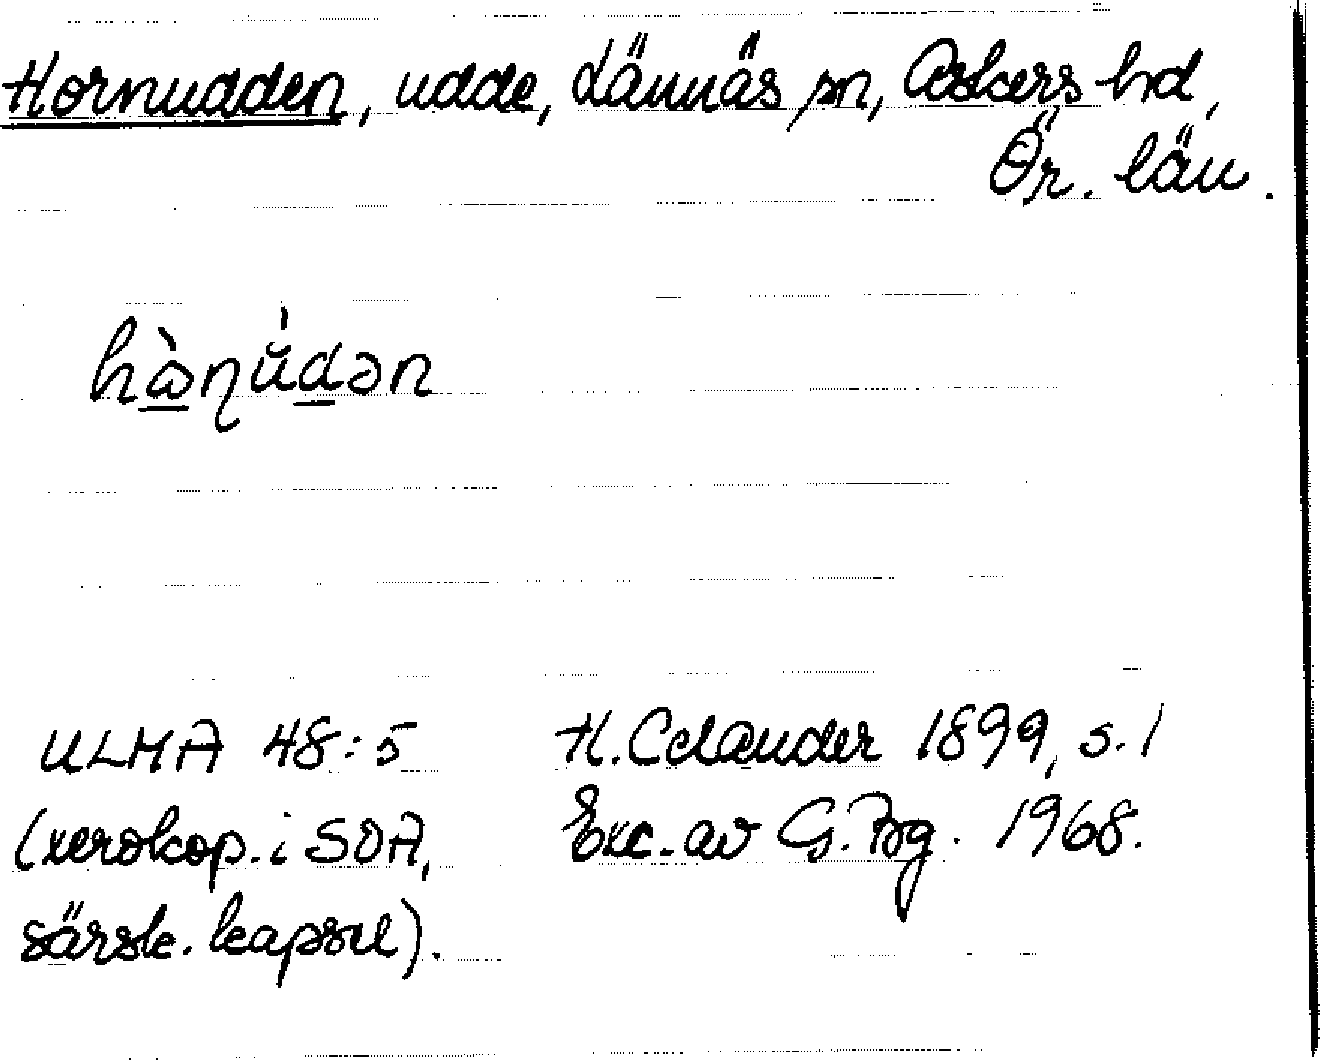 Hornudden, udde, Lännäs sn, Askers hd,
Ör. län.
hàɳu̍dən
ULMA 48:5 H. Celander 1899, s. 1
(xerokop. i SOA, Exc. av G. Bg. 1968.
särsk. kapsel).